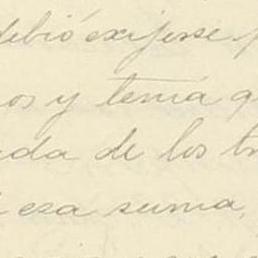 debió exijerse
os y temía q
da de los tr
esa suma,